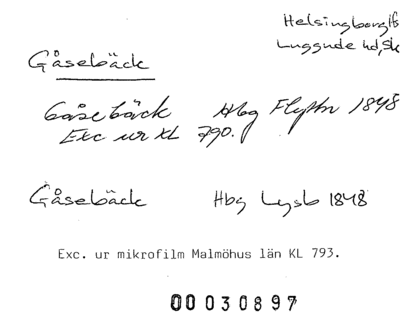 Helsingborg lfs
Luggude hd, Sk
Gåsebäck
Gåsebäck Hbg Flyttn 1848
Exc ur KL 790.
Gåsebäck Hbg Lysb 1848
Exc. ur mikrofilm Malmöhus län KL 793.
00030897